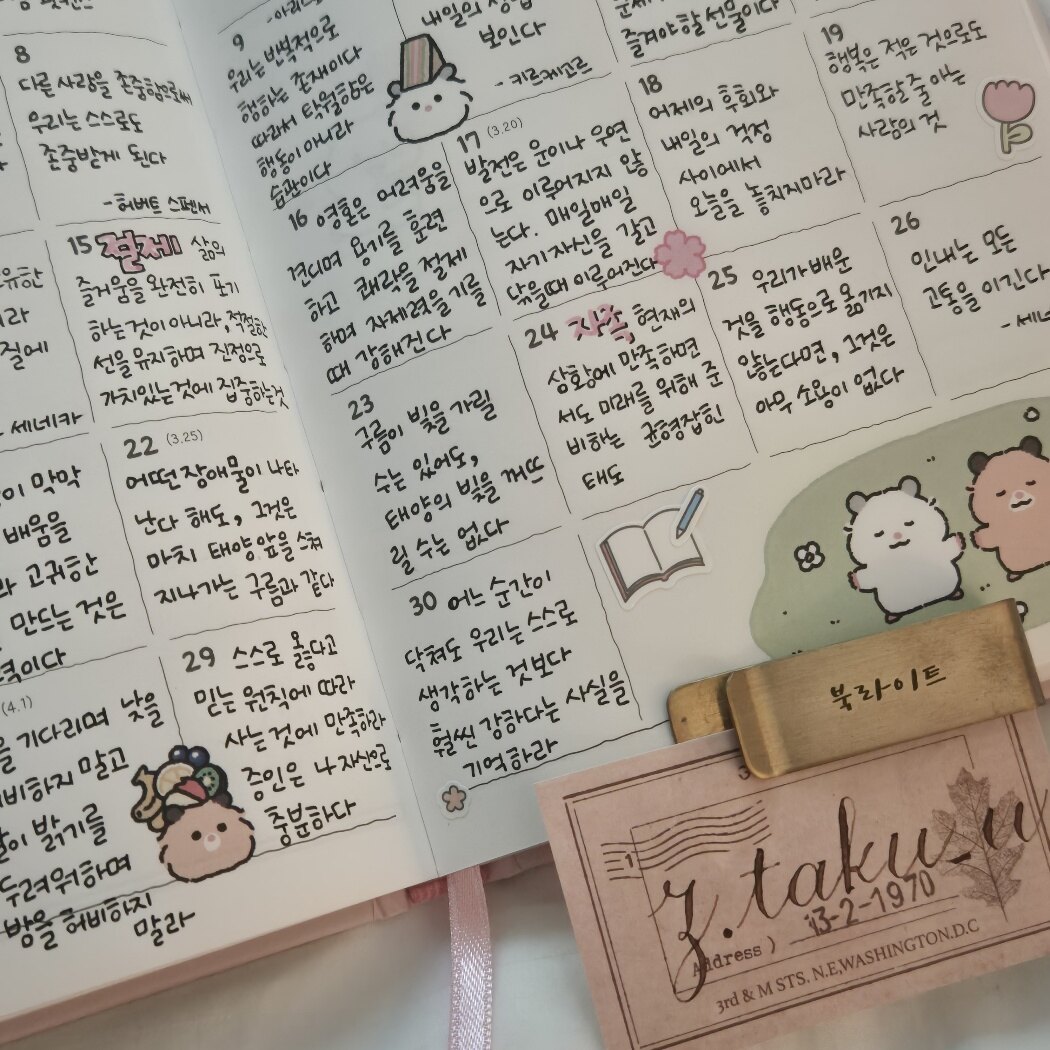 8
다른 사람을 존중함으로써
우리는 스스로도
존중받게 된다
- 허버트 스펜서
9
우리는 반복적으로
행하는 존재이다
따라서 탁월함은
행동이 아니라
습관이다
내일의
보인다
- 키르케고르
즐겨야할 선물이다
15 절제 삶의
즐거움을 완전히 포기
하는 것이 아니라, 적절한
선을 유지하며 진정으로
가치있는 것에 집중하는 것
16 영혼은 어려움을
견디며 용기를 훈련
하고 쾌락을 절제
하며 자제력을 기를
때 강해진다
17 (3.20)
발전은 운이나 우연
으로 이루어지지 않
는다. 매일매일
자기 자신을 갈고
닦을때 이루어진다
18
어제의 후회와
내일의 걱정
사이에서
오늘을 놓치지마라
19
행복은 적은 것으로도
만족할 줄 아는
사람의 것
세네카
질에
22 (3.25)
어떤 장애물이 나타
난다 해도, 그것은
마치 태양 앞을 스쳐
지나가는 구름과 같다
23
구름이 빛을 가릴
수는 있어도,
태양의 빛을 꺼뜨
릴 수는 없다
24 자족, 현재의
상황에 만족하면
서도 미래를 위해 준
비하는 균형잡힌
태도
25 우리가 배운
것을 행동으로 옮기지
않는다면, 그것은
아무 소용이 없다
26
인내는 모든
고통을 이긴다
- 세네
막막
배움을
고귀한
만드는 것은
(4.1)
기다리며 낮을
비하지 말고
밝기를
두려워하며
밤을 허비하지
말라
29 스스로 옳다고
믿는 원칙에 따라
사는 것에 만족하라
증인은 나 자신으로
충분하다
30 어느 순간이
닥쳐도 우리는 스스로
생각하는 것보다
훨씬 강하다는 사실을
기억하라
북라이트
z.taku_u
13-2-1970
Address )
3rd & M STS. N.E,WASHINGTON.D.C